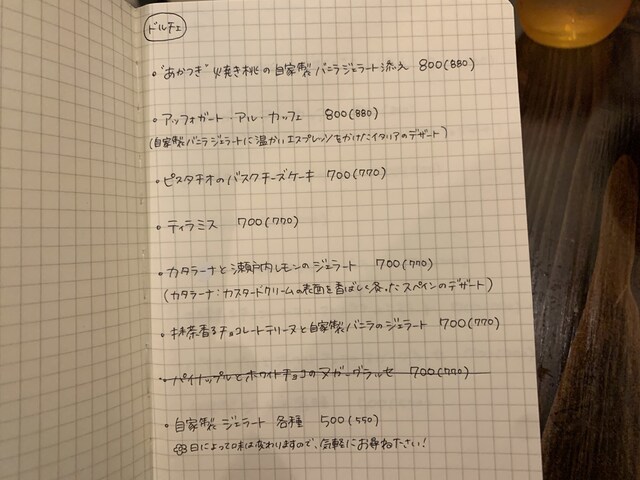 ドルチェ
・"あかつき" 火焼き桃の自家製バニラジェラート添え 800(880)
・アッフォガート・アル・カッフェ 800(880)
(自家製バニラジェラートに温かいエスプレッソをかけたイタリアのデザート)
・ピスタチオのバスクチーズケーキ 700(770)
・ティラミス 700(770)
・カタラーナと瀬戸内レモンのジェラート 700(770)
(カタラーナ:カスタードクリームの表面を香ばしく炙ったスペインのデザート)
・抹茶香るチョコレートテリーヌと自家製バニラのジェラート 700(770)
・パイナップルとホワイトチョコのヌガーグラッセ 700(770)
・自家製ジェラート 各種 500(550)
日によって味は変わりますので、気軽にお尋ねださい!